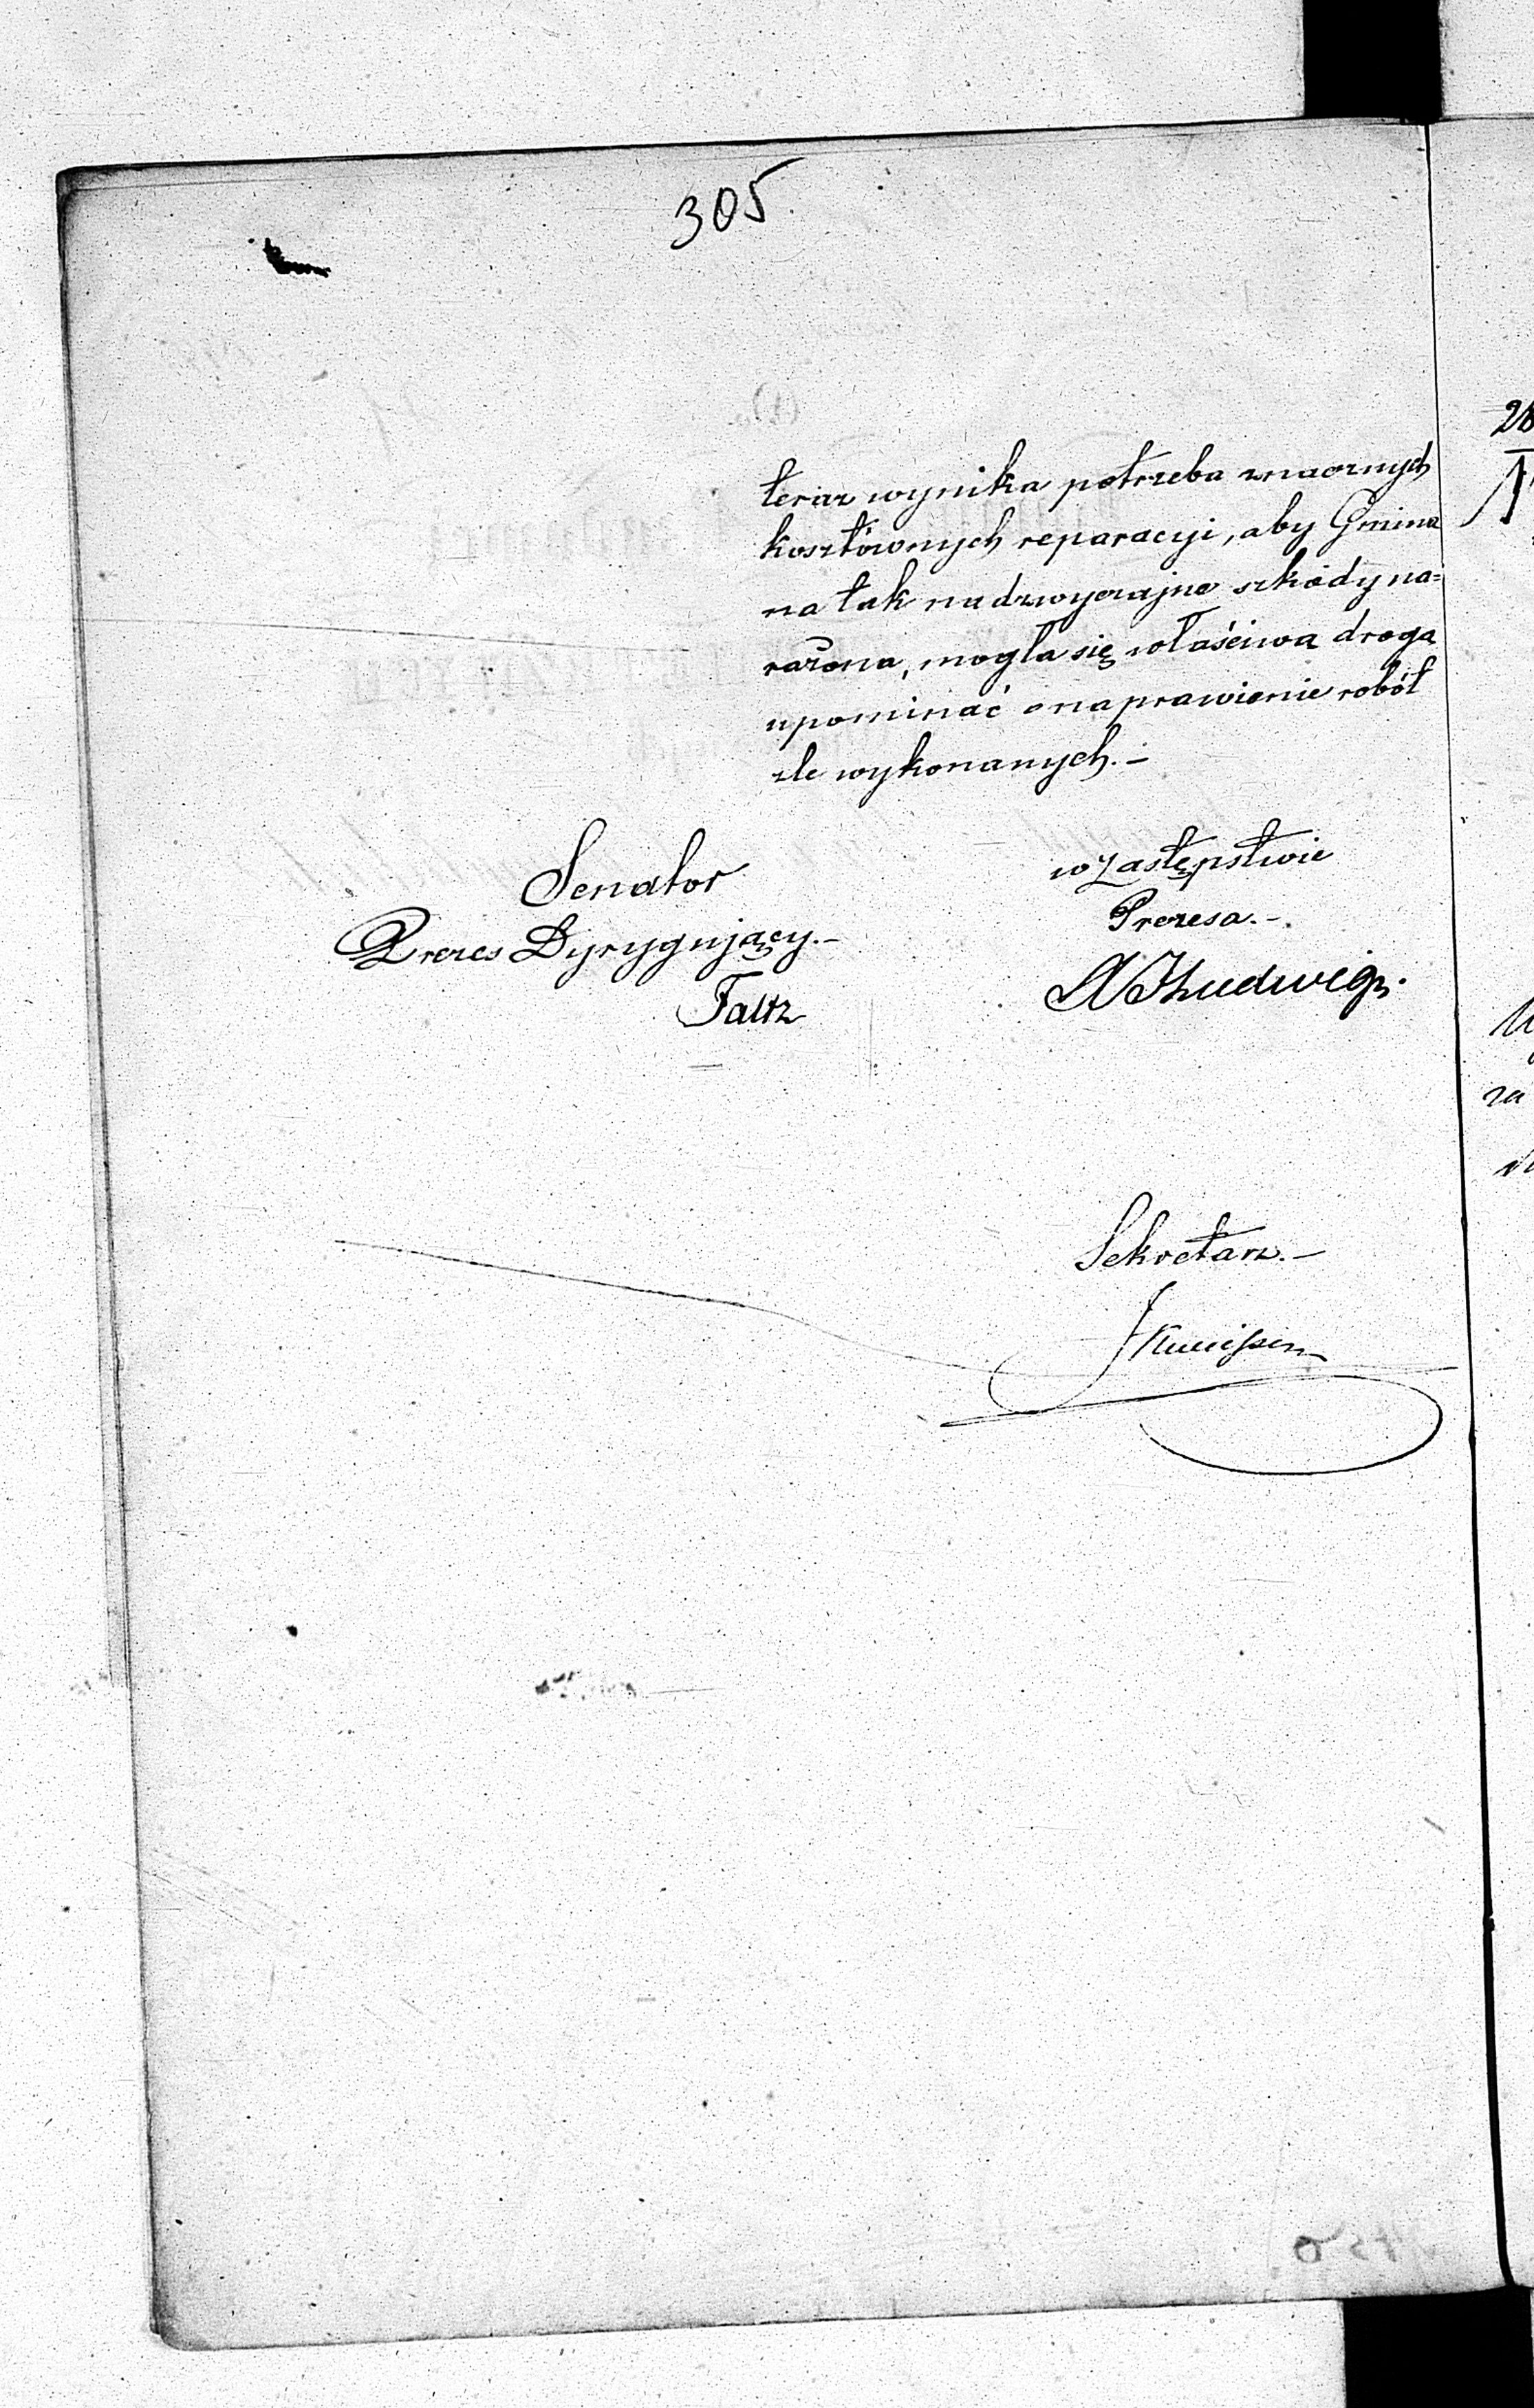 305
teraz wynika potrzeba znacznych
kosztownych reparacyi, aby Gmina
na tak nadzwyczajne szkody na=
rażona, mogła się właściwą drogą
upominać o naprawienie robót
źle wykonanych.—
Senator
Prezes Dyrygujący.—
Faltz
w Zastępstwie
Prezesa.—
Ludwig.
Sekretarz.—